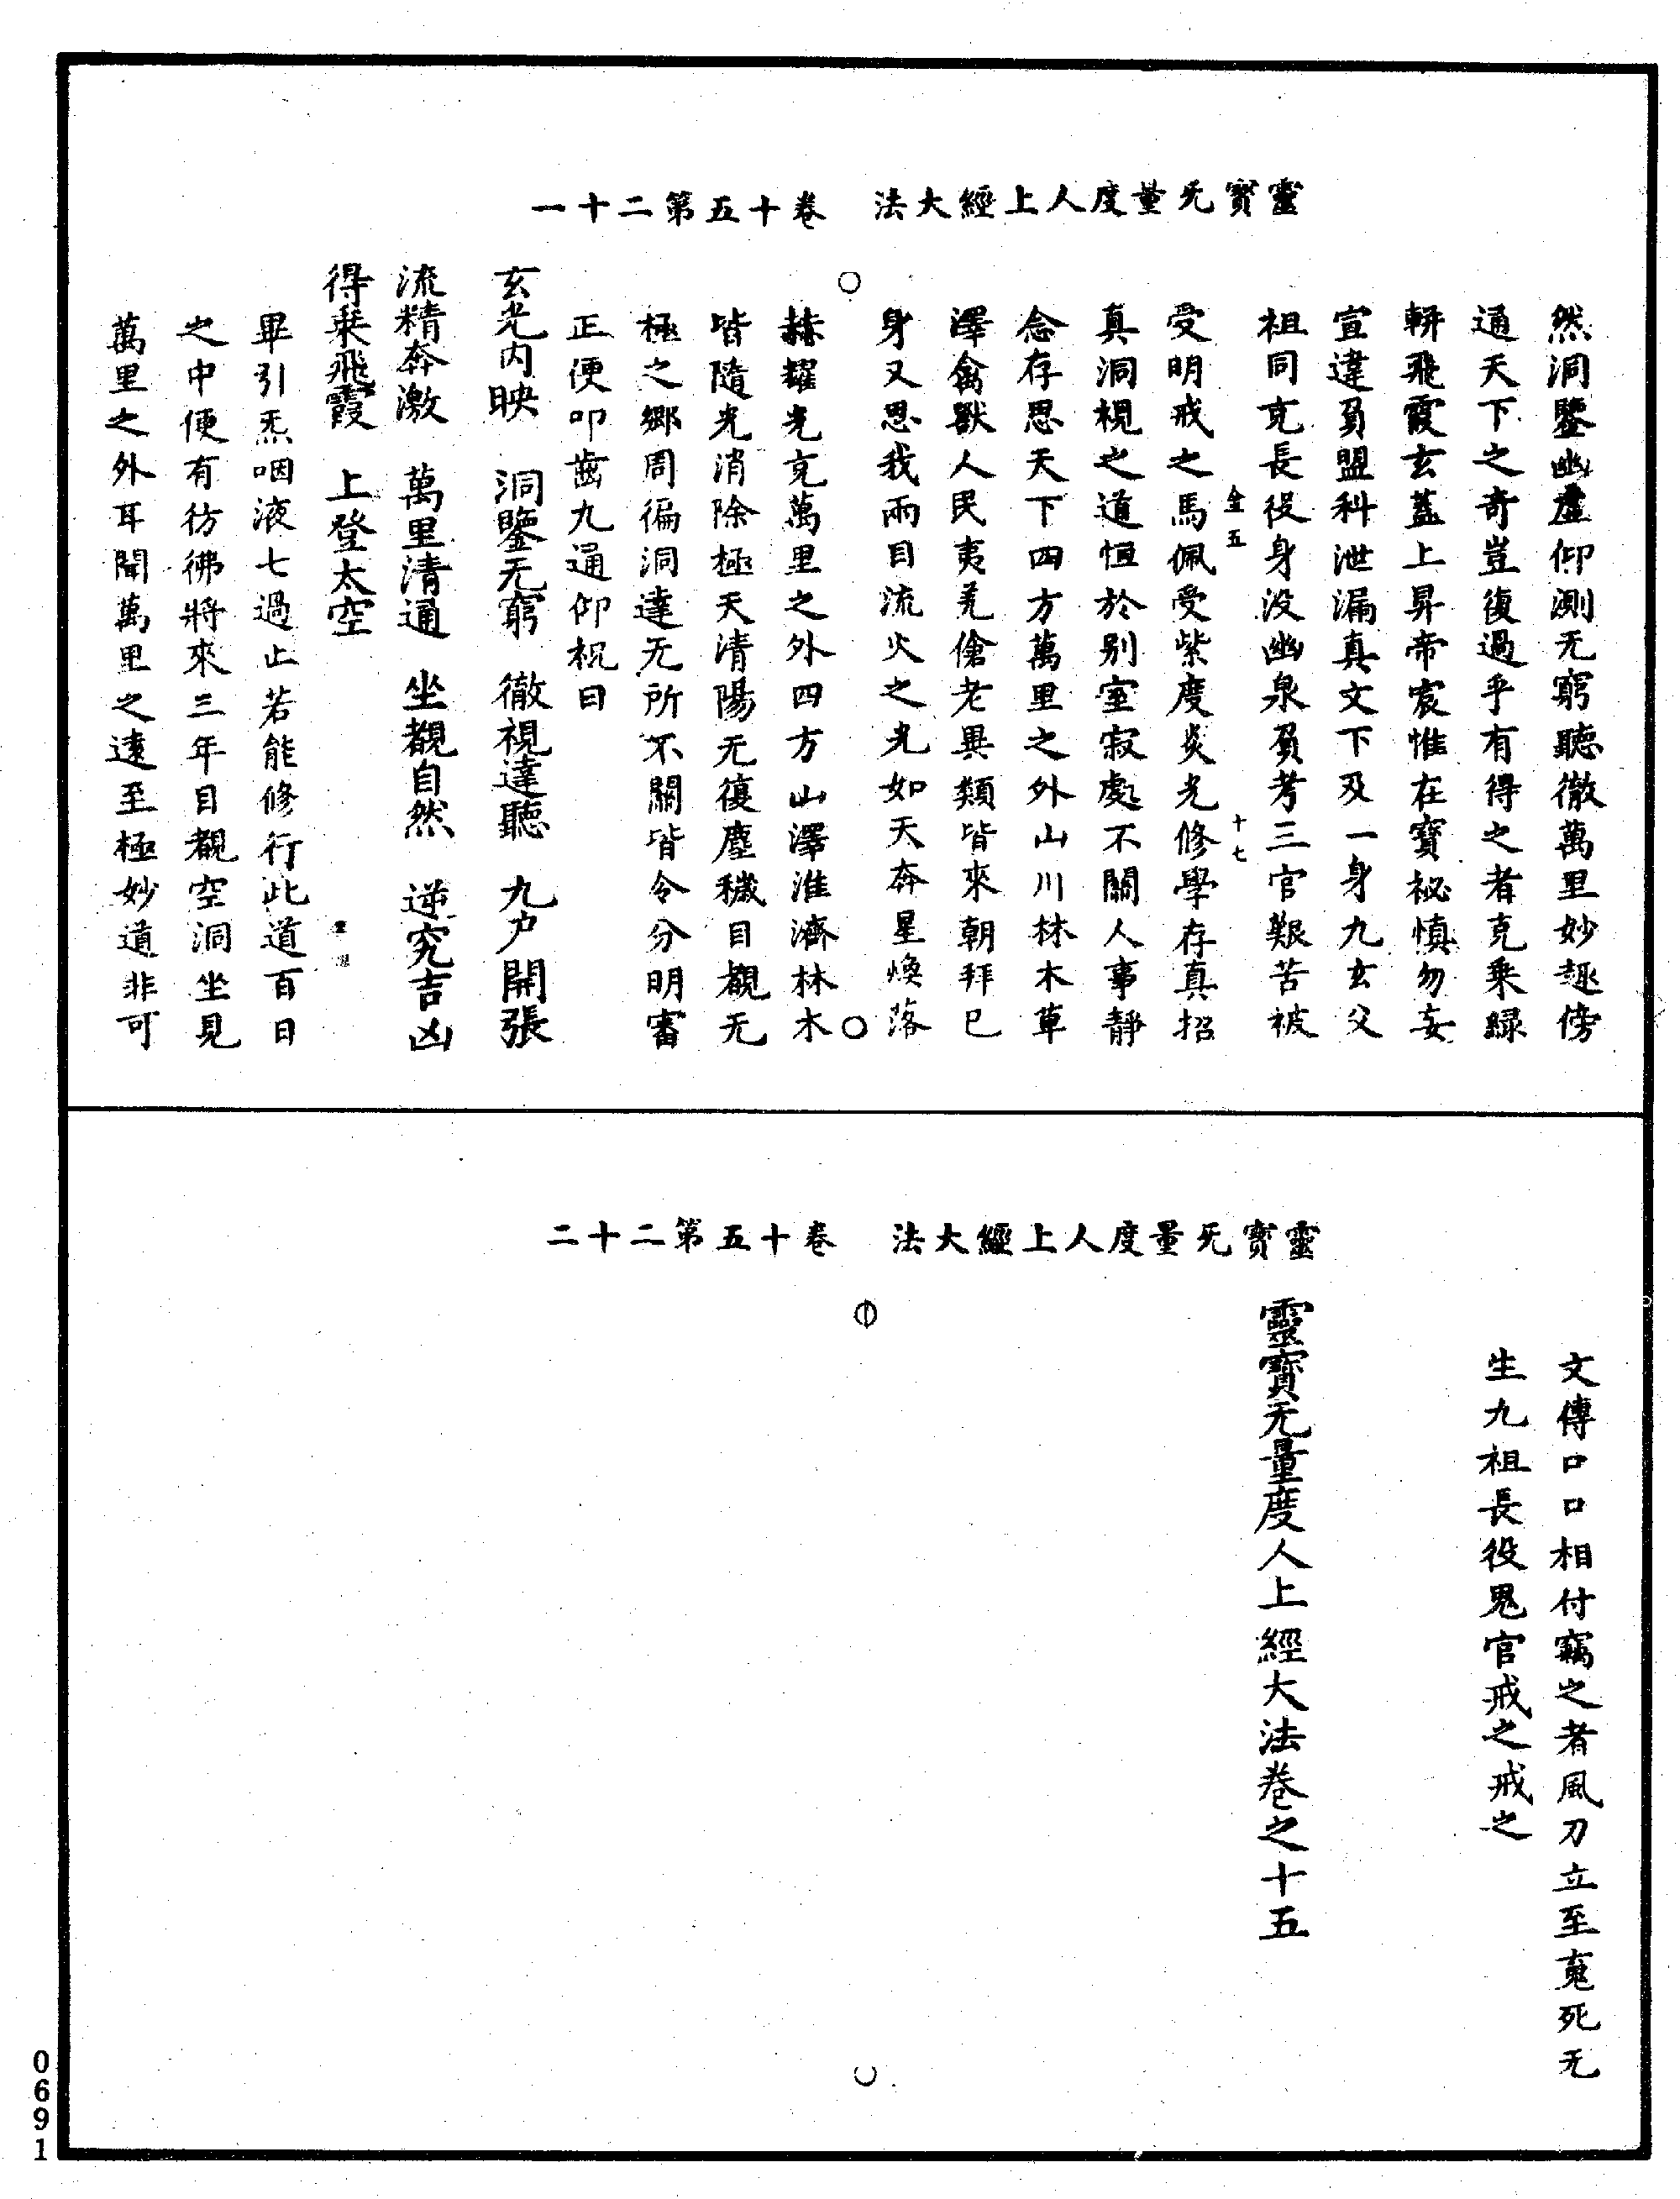 靈寳无量度人上經大法　卷十五第二十一
然洞鑒幽虛仰測无窮聽徹萬里妙趣傍
通天下之奇豈復過乎有得之者克乘緑
軿飛霞玄蓋上昇帝宸惟在寶祕慎勿妄
宣違負盟科泄漏真文下及一身九玄父
祖同克長役身没幽泉負考三官艱苦被
金五　十七
受明戒之焉佩受紫度炎光修學存真招
真洞視之道恒於别室寂處不關人事靜
念存思天下四方萬里之外山川林木草
澤禽獸人民夷羌傖老異類皆來朝拜已
身又思我兩目流火之光如天奔星煥落
赫耀光克萬里之外四方山澤淮濟林木
皆隨光消除極天清陽无復塵穢目覩无
極之鄉周徧洞達无所不關皆令分明審
正便叩齒九通仰祝曰
玄光内映　洞鑒无窮　徹視達聽　九户開張
流精奔激　萬里清通　坐覩自然　逆究吉凶
得乗飛霞　上登太空
畢引炁咽液七過止若能修行此道百日
之中便有彷彿將來三年目覩空洞坐見
萬里之外耳聞萬里之遠至極妙道非可
靈寳无量度人上經大法　卷十五第二十二
文傳口口相付竊之者風刀立至䰟死无
生九祖長役鬼官戒之戒之
靈寳无量度人上經大法卷之十五
0691